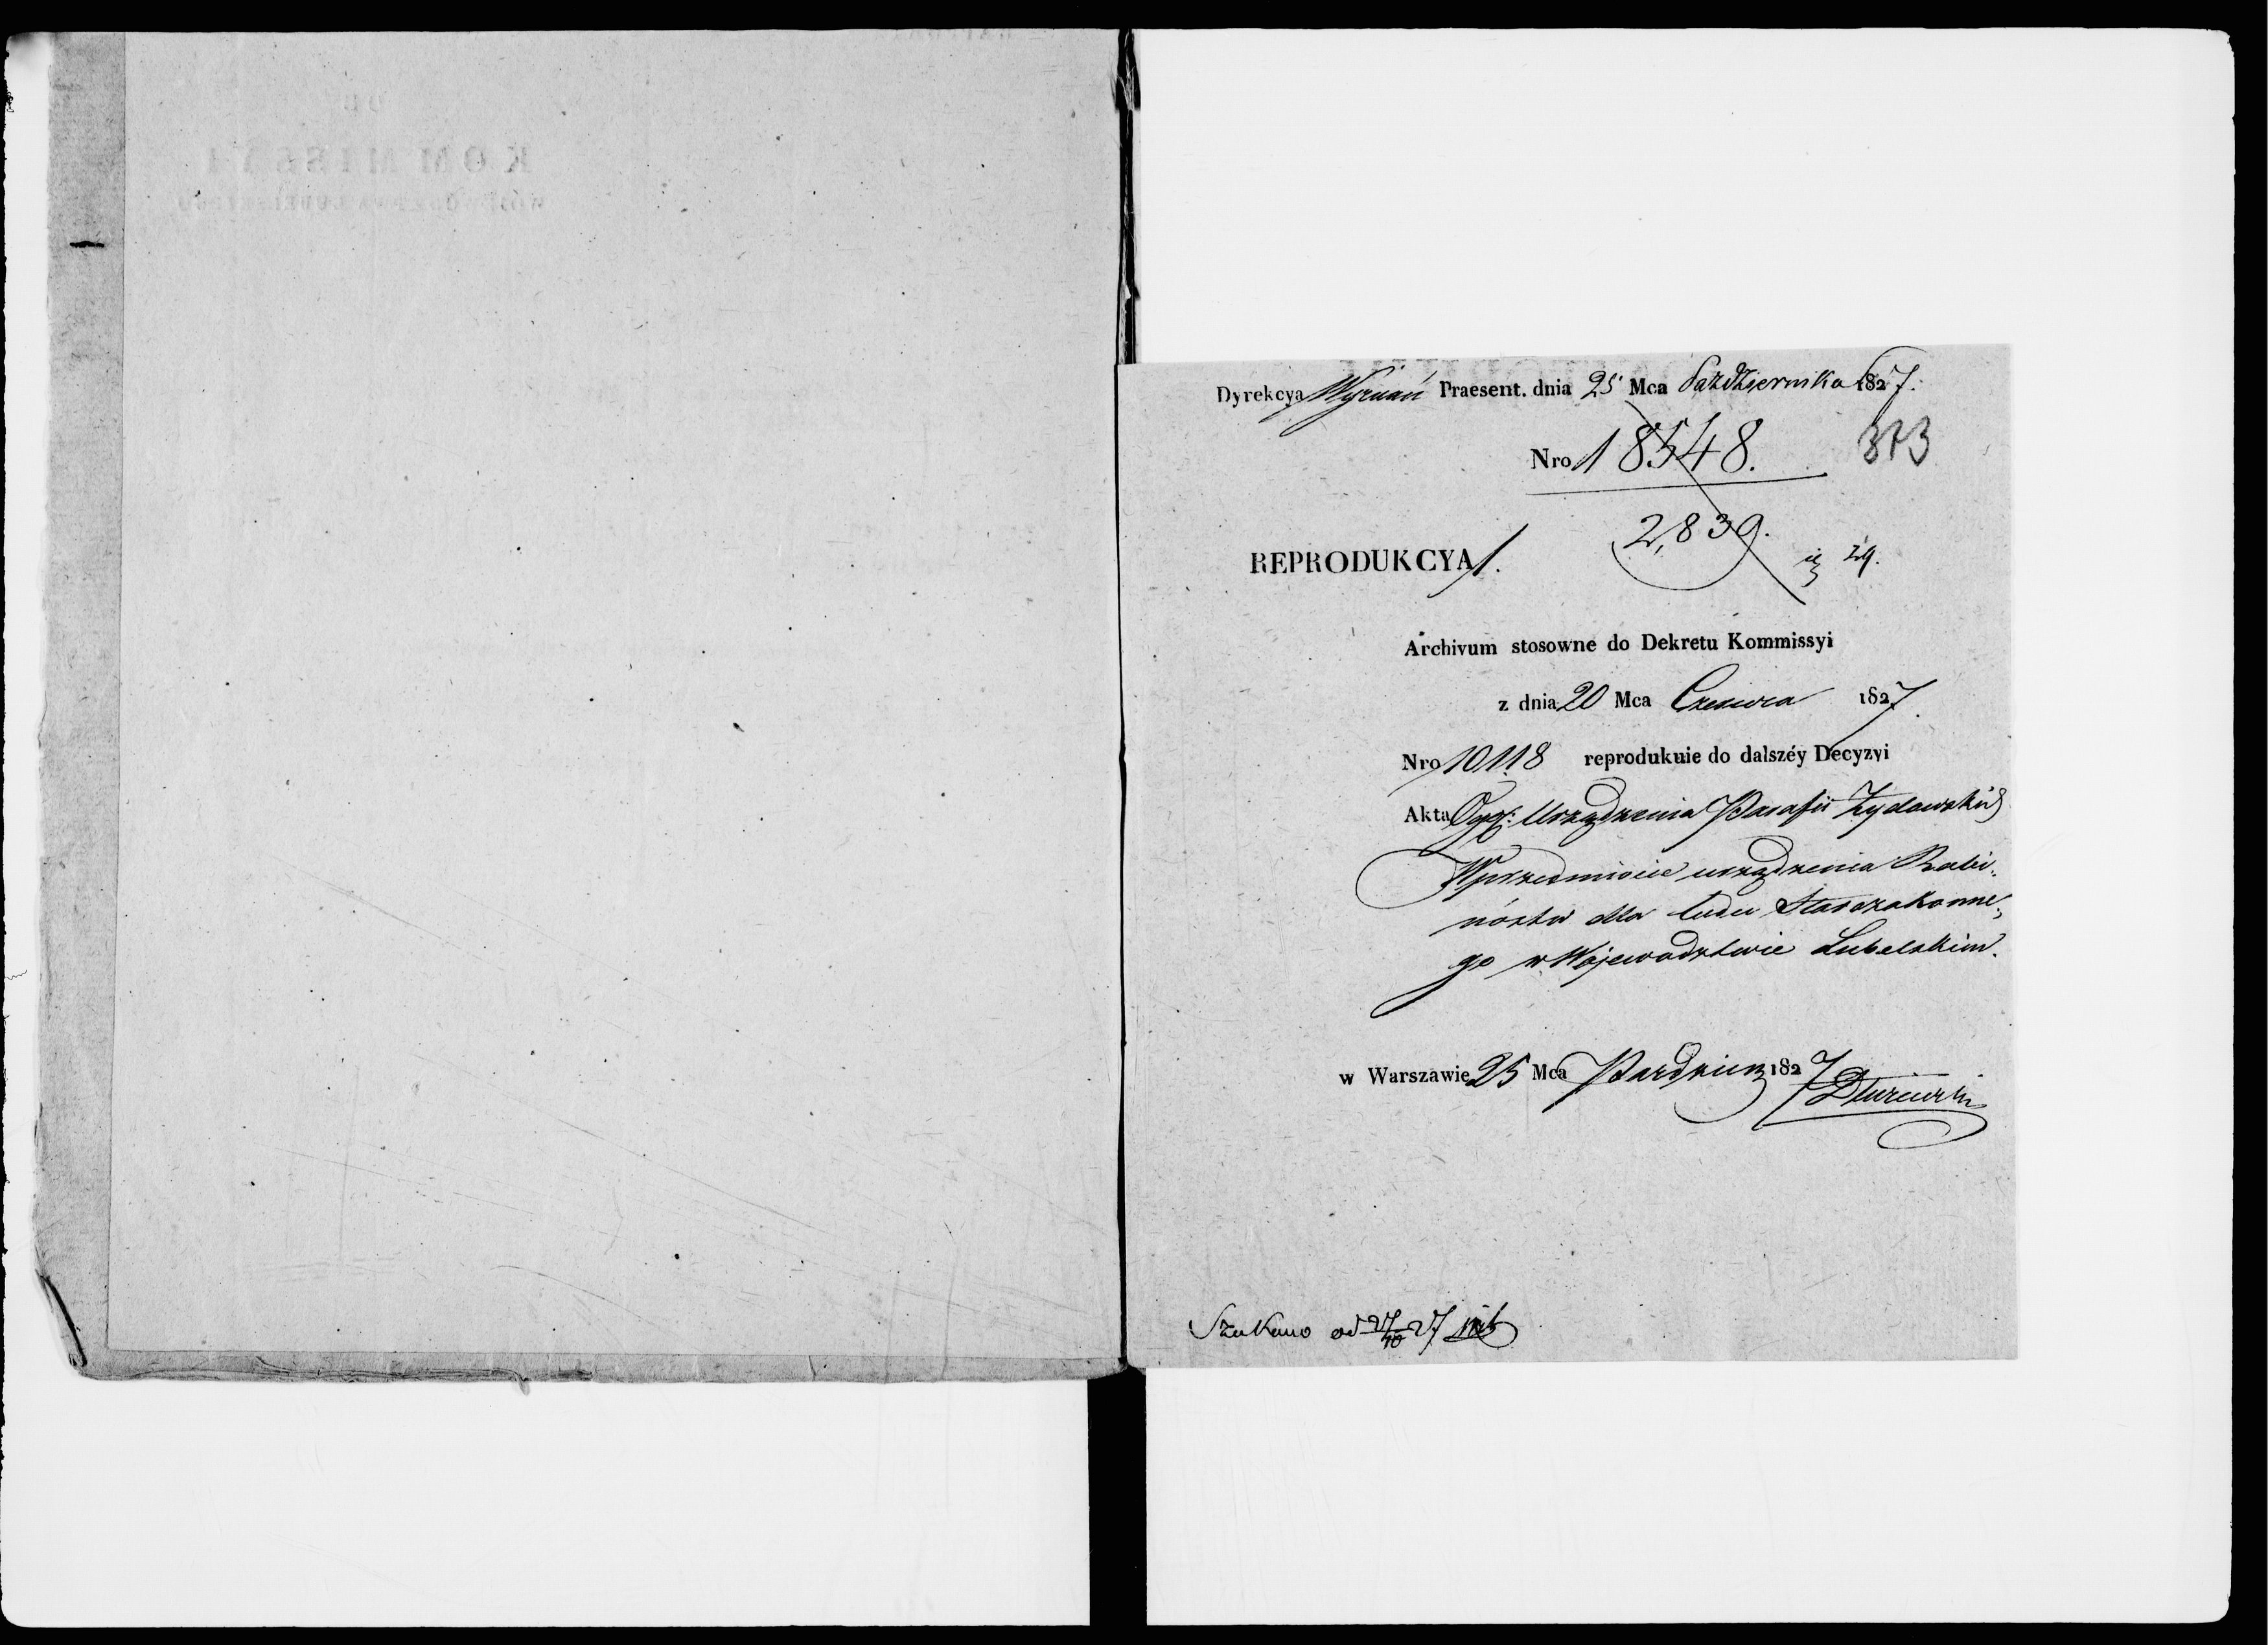 Dyrekcya Wyznań Praesent. dnia 25 Mca Października 1827.
Nro 18548. 373
2,839.
REPRODUKCYA 1. 29.
Archivum stosowne do Dekretu Kommissyi
z dnia 20 Mca Czerwca 1827.
Nro 10118 reprodukuie do dalszéy Decyzyi
Akta Ogg: Urządzenia Parafii Żydowskich
W przedmiocie urządzenia Rabi-
nóstw dla ludu Starozakonne-
go w Wojewodztwie Lubelskim.
w Warszawie 25 Mca Pazdzier 1827
Szukano od 27/10 27
KOMMISSYI
WOJEWODZTWA LUBELSKIEGO